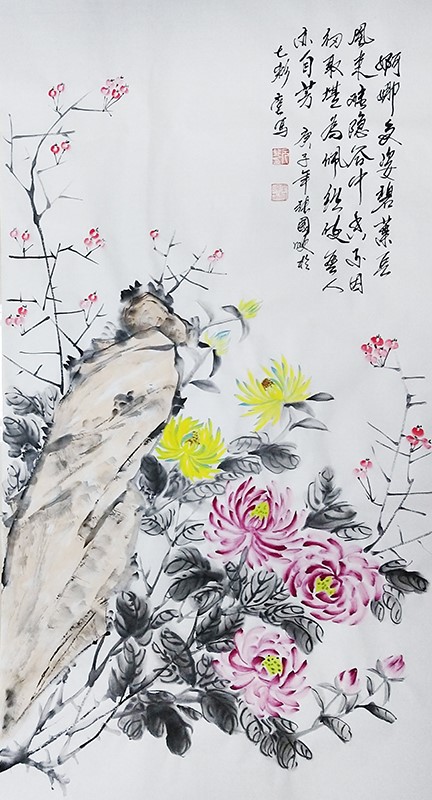 婀娜多姿碧葉長
風来难隐谷中香不因
纫取堪為佩纵使無人
亦自芳 庚子年張國於
七彩堂寫